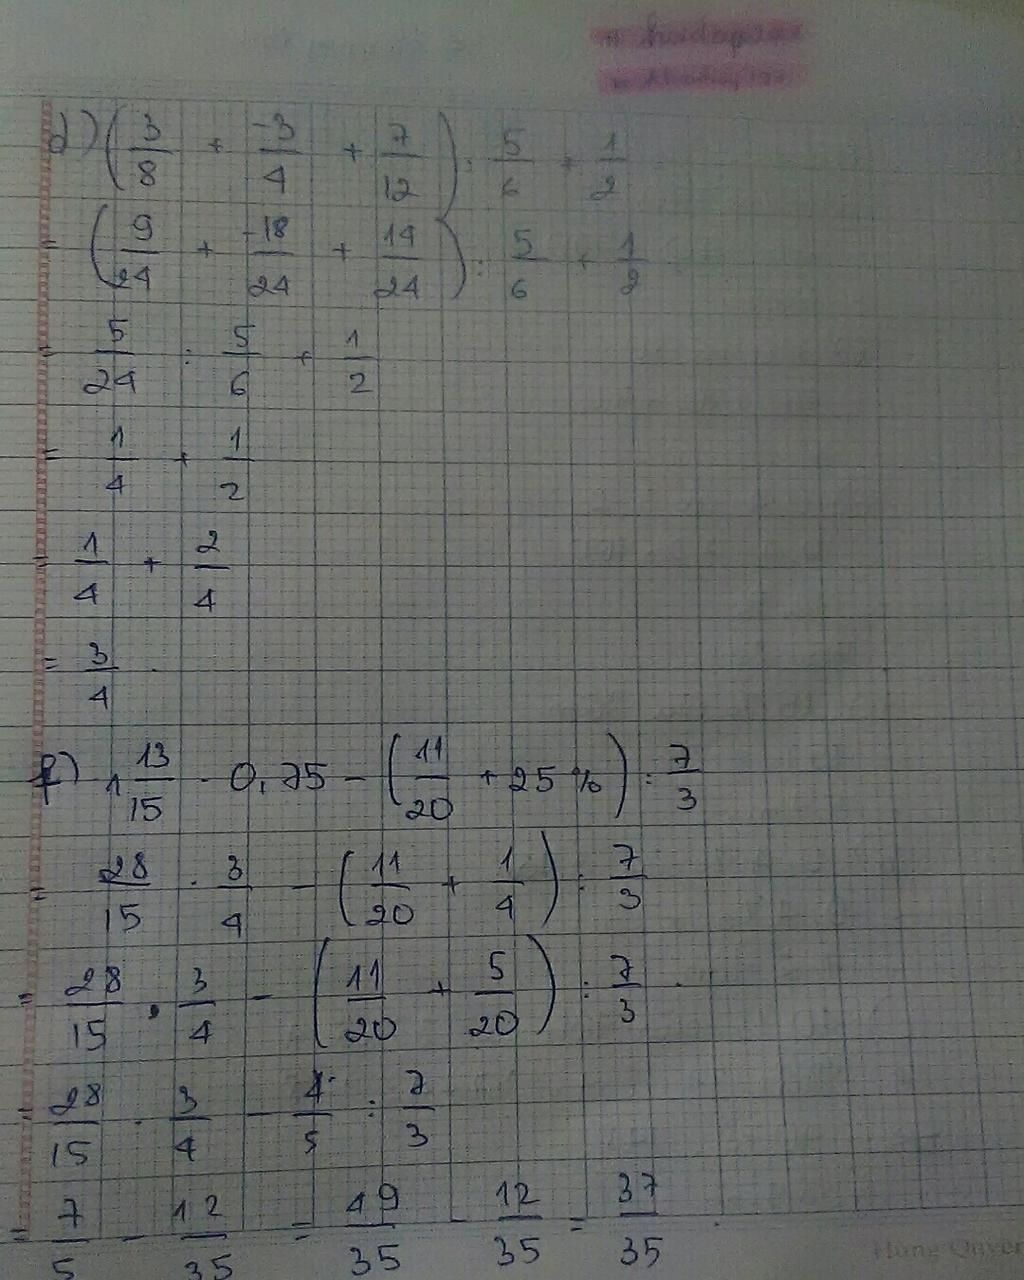 d) (3/8 + -3/4 + 7/12) : 5/6 + 1/2
= (9/24 + -18/24 + 14/24) : 5/6 + 1/2
= 5/24 : 5/6 + 1/2
= 1/4 + 1/2
= 1/4 + 2/4
= 3/4
f) 1 13/15 . 0,75 - (11/20 + 25%) : 7/3
= 28/15 . 3/4 - (11/20 + 1/4) : 7/3
= 28/15 . 3/4 - (11/20 + 5/20) : 7/3
= 28/15 . 3/4 - 4/5 : 7/3
= 7/5 - 12/35 = 49/35 - 12/35 = 37/35